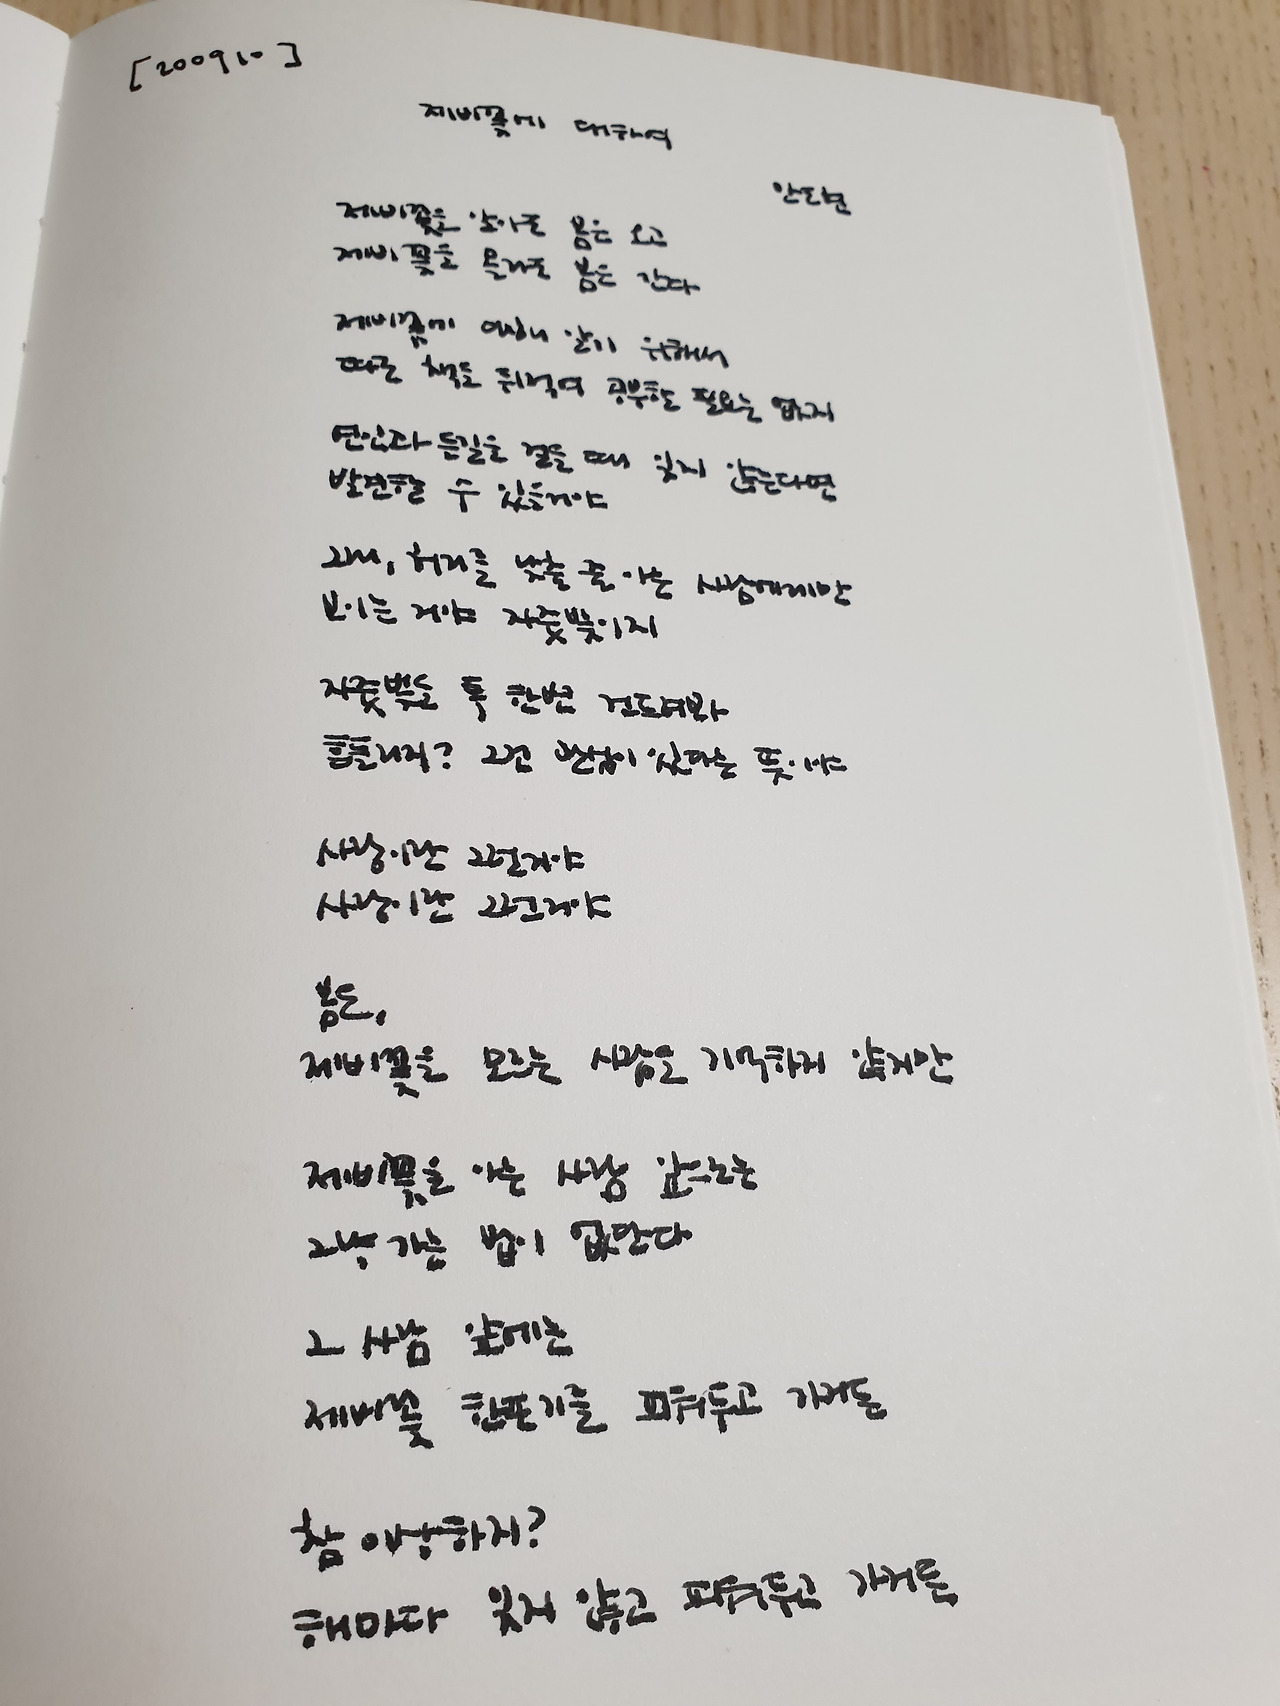 [200910]
제비꽃에 대하여
안도현
제비꽃을 알아도 봄은 오고
제비꽃을 몰라도 봄은 간다
제비꽃에 대해 알기 위해서
따로 책을 뒤적여 공부할 필요는 없지
연인과 들길을 걸을 때 잊지 않는다면
발견할 수 있을거야
그래, 허리를 낮출 줄 아는 사람에게만
보이는 거야 자줏빛이지
자줏빛을 톡 한번 건드려봐
흔들리지? 그건 관심이 있다는 뜻이야
사랑이란 그런거야
사랑이란 그런거야
봄은,
제비꽃을 모르는 사람을 기억하지 않지만
제비꽃을 아는 사람 앞으로는
그냥 가는 법이 없단다
그 사람 앞에는
제비꽃 한포기를 피워두고 가거든
참 이상하지?
해마다 잊지 않고 피워두고 가거든